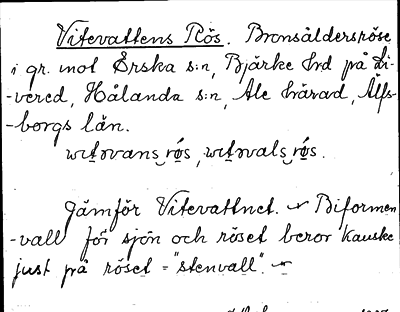 Vitevattens Rös. Bronsåldersröse
i gr. mot Ørska s:n, Bjärke hrd på Li-
-vered, Hålanda s:n, Ale härad, Älfs-
-borgs län.
witəvans rǿs, witəvals rǿs.
Jämför Vitevattnet. Biformen
-vall för sjön och röset beror kanske
just på röset = "stenvall".